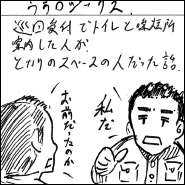 うろロジックス
巡回受付でトイレと喫煙所
案内した人が、
となりのスペースの人だった話。
私だ
お前だったのか